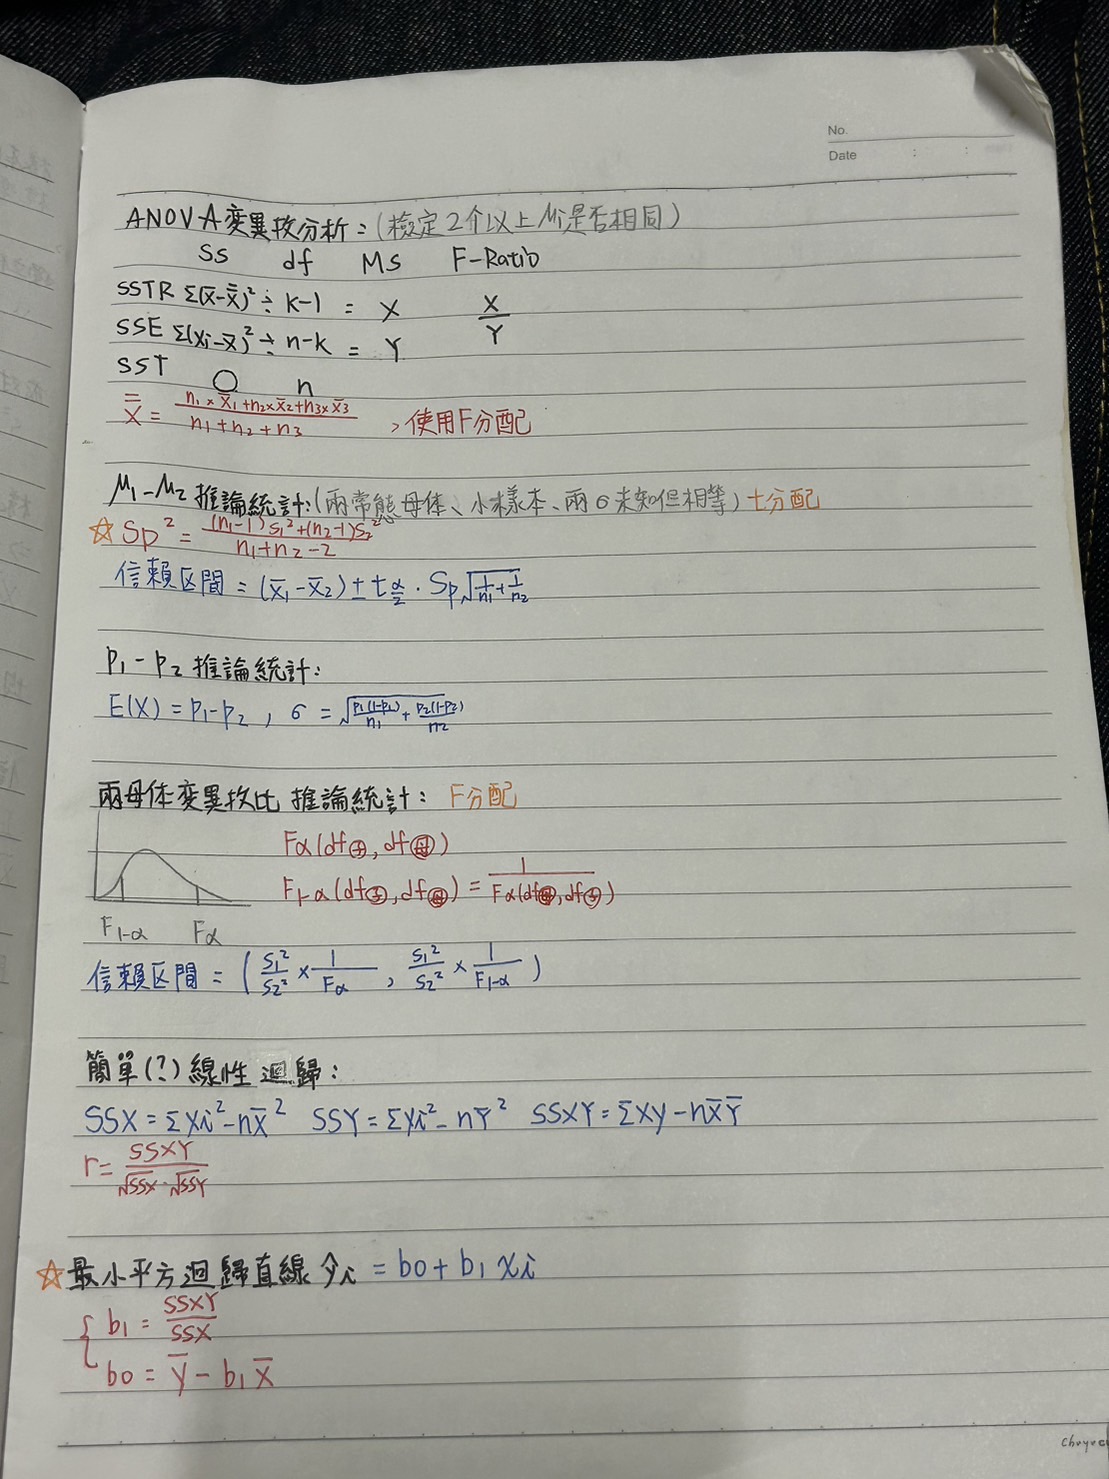 No.
Date : :
ANOVA変異數分析:(檢定2个以上μi是否相同)
SS df MS F-Ratio
SSTR Σ(x̄-x̿)² ÷ k-1 = X X/Y
SSE Σ(xi-x̄)² ÷ n-k = Y
SST ○ n
x̿ = (n1×x̄1+n2×x̄2+n3×x̄3)/(n1+n2+n3) ,使用F分配
μ1-μ2 推論統計:(兩常態母体、小樣本、兩σ未知但相等) t分配
☆ Sp² = ((n1-1)S1²+(n2-1)S2²)/(n1+n2-2)
信賴区間 = (x̄1-x̄2) ± t α/2 · Sp√(1/n1+1/n2)
p1-p2 推論統計:
E(X) = p1-p2 , σ = √(p1(1-p1)/n1 + p2(1-p2)/n2)
兩母体変異數比 推論統計: F分配
Fα(df子, df母)
F1-α(df子, df母) = 1/Fα(df母, df子)
F1-α Fα
信賴区間 = ( S1²/S2² × 1/Fα , S1²/S2² × 1/F1-α )
簡單(?)線性 迴歸:
SSX = Σxi²-nx̄² SSY = Σyi²-nȲ² SSXY = Σxy-nx̄Ȳ
r = SSXY/(√SSX·√SSY)
☆最小平方迴歸直線 ŷi = b0 + b1 xi
{ b1 = SSXY/SSX
b0 = ȳ - b1x̄